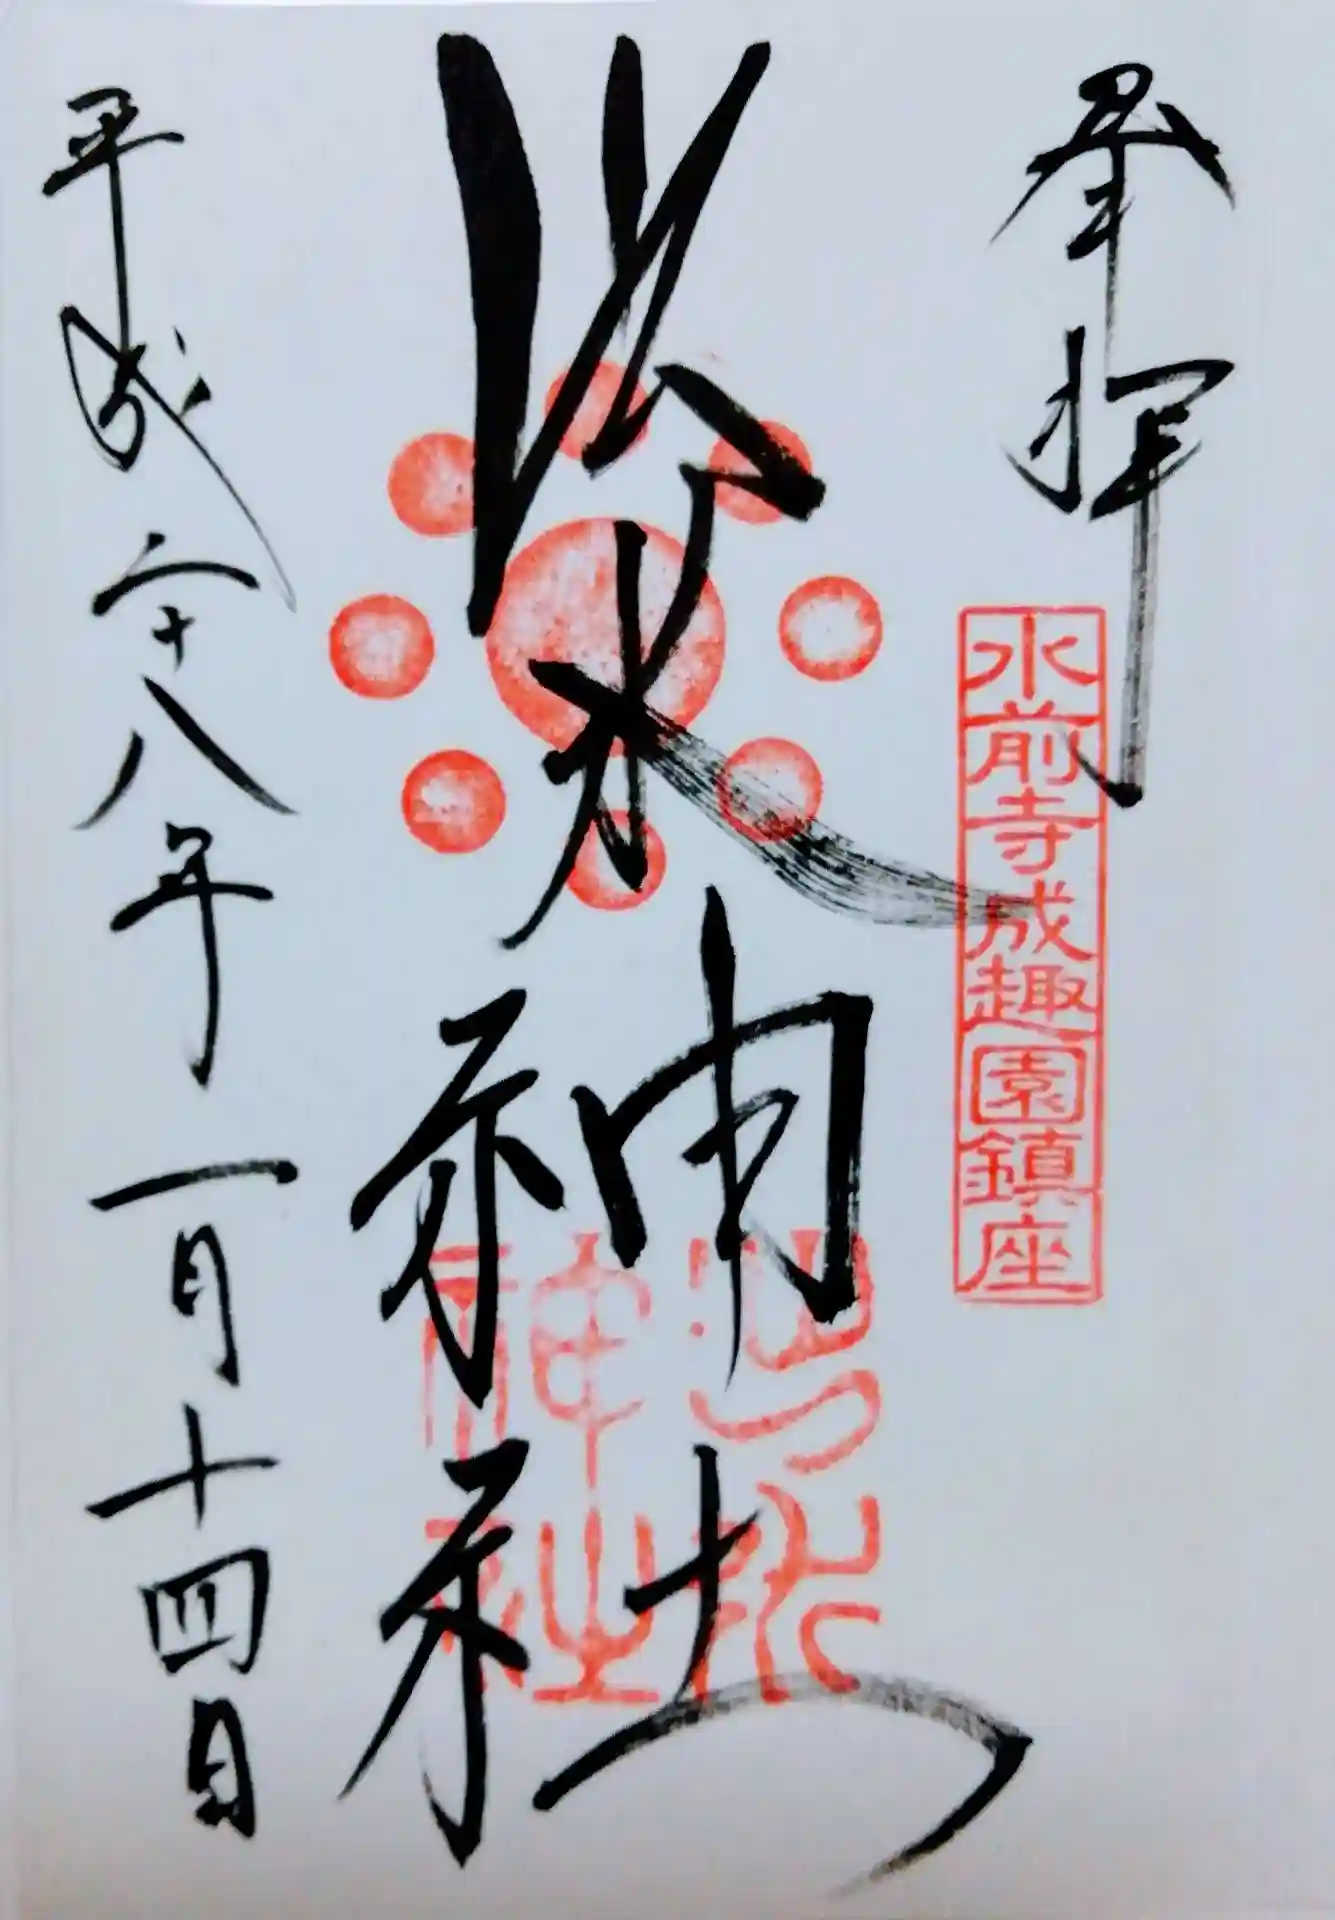 奉拝
水前寺成趣園鎮座
出水神社
出水神社
平成二十八年一月十四日